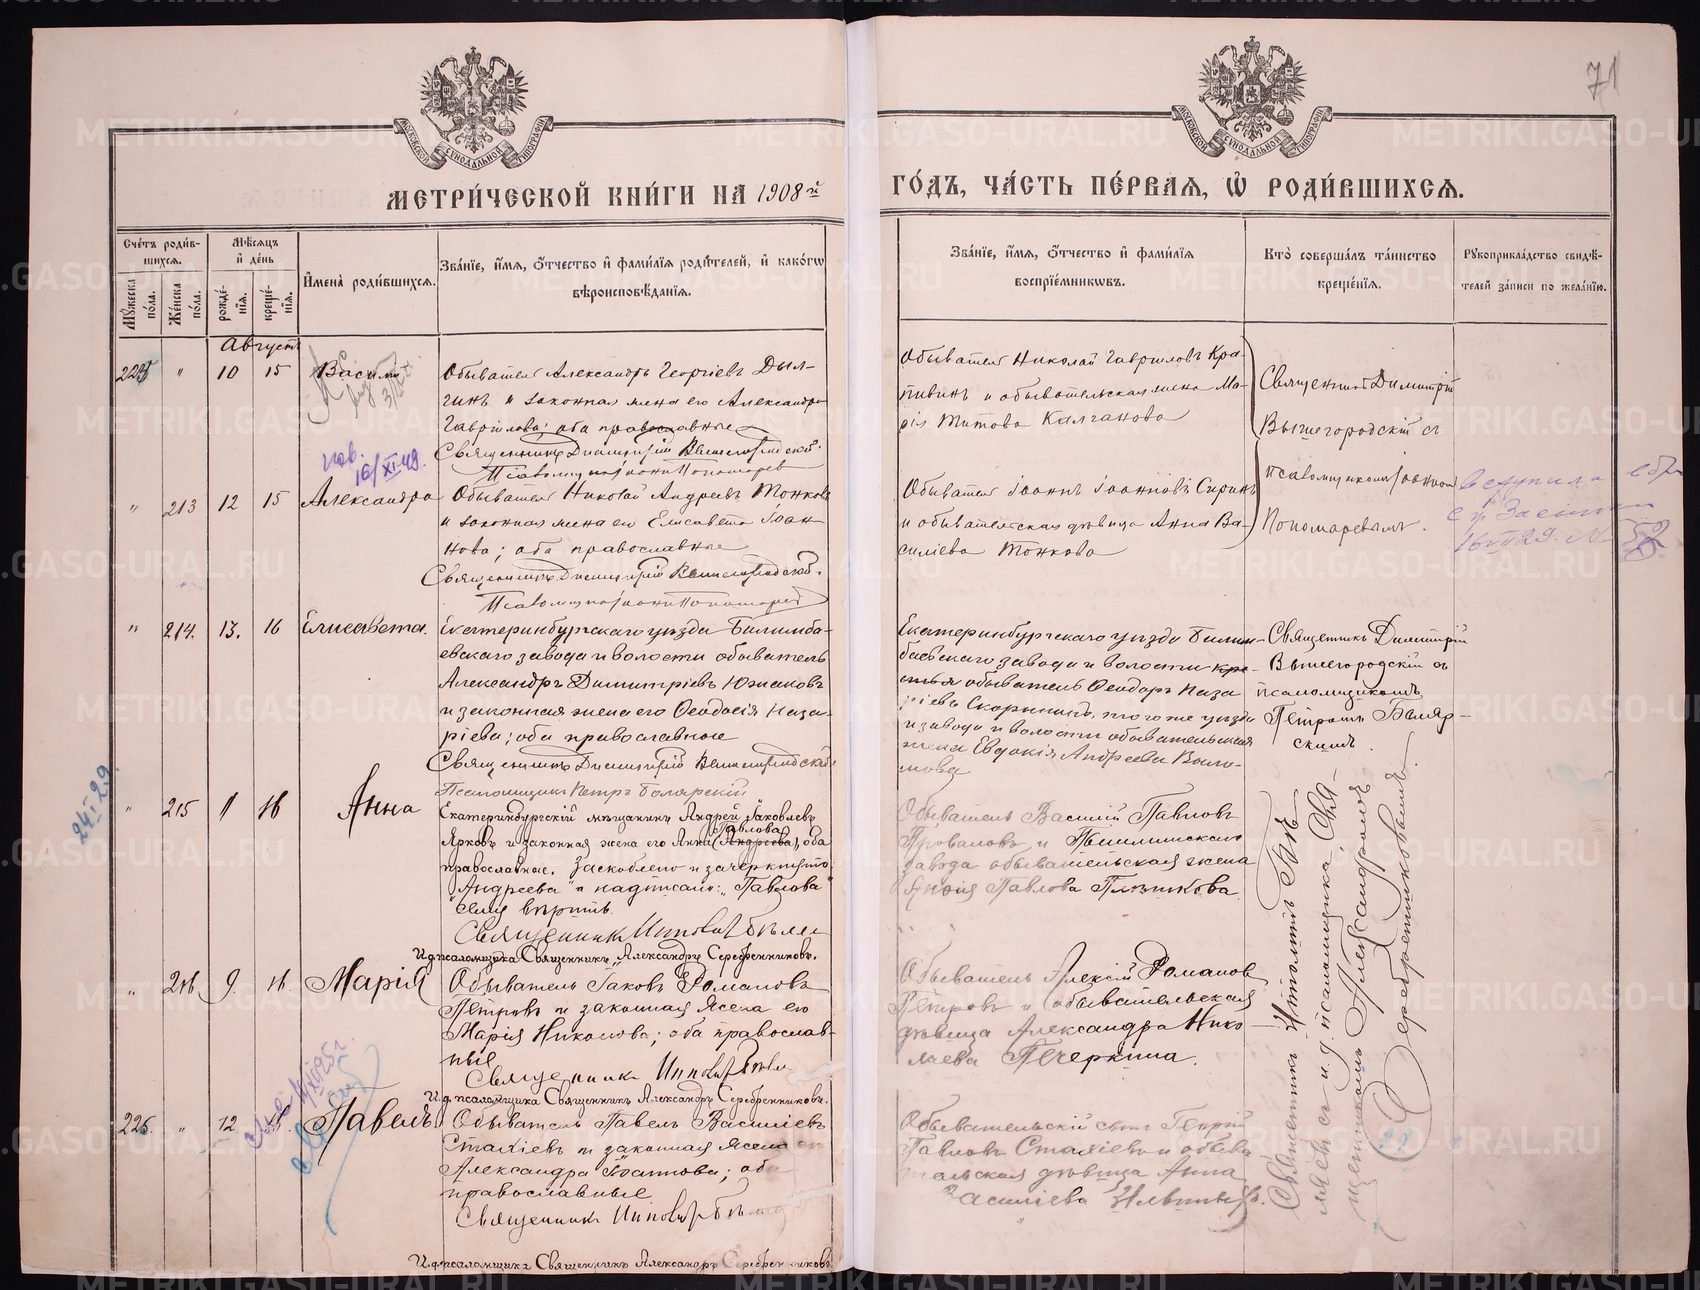 71
МОСКОВСКОЙ СѴНОДАЛЬНОЙ ТИПОГРАФІИ
МОСКОВСКОЙ СѴНОДАЛЬНОЙ ТИПОГРАФІИ
МЕТРИ́ЧЕСКОЙ КНИ́ГИ НА 1908й
ГО́ДЪ, ЧА́СТЬ ПЕ́РВАЯ, Ѽ РОДИ́ВШИХСЯ.
Сче́тъ роди́вшихся.
Мꙋ́жеска по́ла.
Же́нска по́ла.
Мѣ́сяцъ и҆ де́нь
рожде́нїя.
креще́нїя.
И҆мена̀ роди́вшихся.
Зва́нїе, и҆́мя, ѻ҆́тчество и҆ фами́лїя роди́телей, и҆ како́гѡ
вѣроисповѣ́данїя.
Зва́нїе, и҆́мя, ѻ҆́тчество и҆ фами́лїя
воспрїе́мникѡвъ.
Кто̀ соверша́лъ та́инство
креще́нїя.
Рꙋкоприкла́дство свидѣ́-
телей за́писи по жела́нїю.
Августъ
225 " 10 15 Василій
Обыватель Александръ Георгіевъ Дыл-
гинъ и законная жена его Александра
Гавріилова; оба православные
Священникъ Димитрій Вышегородской.
Псаломщик Іоаннъ Пономарев
Обыватель Николай Гавріиловъ Кра-
пивинъ и обывательская жена Ма-
рія Титова Калганова
Священникъ Димитрій
Вышегородскій съ
псаломщикомъ Іоанном
Пономаревымъ.
пов.
16/XI-49.
" 213 12 15 Александра
Обыватель Николай Андреевъ Тонковъ
и законная жена его Елисавета Іоан-
нова; оба православные
Священникъ Димитрій Вышегородской.
Псаломщик Іоаннъ Пономарев
Обыватель Іоаннъ Іоанновъ Сиринъ
и обывательская дѣвица Анна Ва-
силіева Тонкова
вступила
" 214. 13. 16 Елисавета.
Екатеринбургскаго уѣзда Билимба-
евскаго завода и волости обыватель
Александръ Димитріевъ Южаковъ
и законная жена его Ѳеодосія Наза-
ріева; оба православные
Священникъ Димитрій Вышегородской
Псаломщикъ Петръ Болярскій
Екатеринбургскаго уѣзда Билим-
баевскаго завода и волости кре-
стья обыватель Ѳеодоръ Наза-
ріевъ Скорынинъ, того же уѣзда
и завода и волости обывательская
жена Евдокія Андреева
Священникъ Димитрій
Вышегородскій съ
псаломщикомъ
Петромъ Боляр-
скимъ.
24/I 29.
" 215 11 16 Анна
Екатеринбургскій мѣщанинъ Андрей Іаковлевъ
Павлова
Ярковъ и законная жена его Анна (Андреева), оба
православные. Заскоблено и зачеркнуто:
"Андреева" и надписано: "Павлова"
сему вѣрить.
Священникъ Ипполитъ
И.д. псаломщика Священникъ Александръ Серебренниковъ.
Обыватель Василій Павловъ
Проваловъ и Пышминскаго
завода обывательская жена
Павлова Плотникова
" 216. 9. 16. Марія
Обыватель Іаковъ Романовъ
Петровъ и законная жена его
Марія Николова; оба православ-
ные
Священникъ Ипполитъ
И.д. псаломщика Священникъ Александръ Серебренниковъ.
Обыватель Алексій Романовъ
Петровъ и обывательская
дѣвица Александра Нико-
лаева Печеркина.
226. " 12 16. Павелъ
Обыватель Павелъ Василіевъ
Стахіевъ и законная жена его
Александра; оба
православные
Священникъ Ипполитъ
И.д. псаломщика Священникъ Александръ Серебренниковъ
Обывательскій сынъ Георгій
Павловъ Стахіевъ и обыва-
тельская дѣвица Анна
Василіева
Священникъ Ипполитъ
съ и.д. псаломщика, Свя-
щенникомъ Александромъ
Серебренниковымъ.